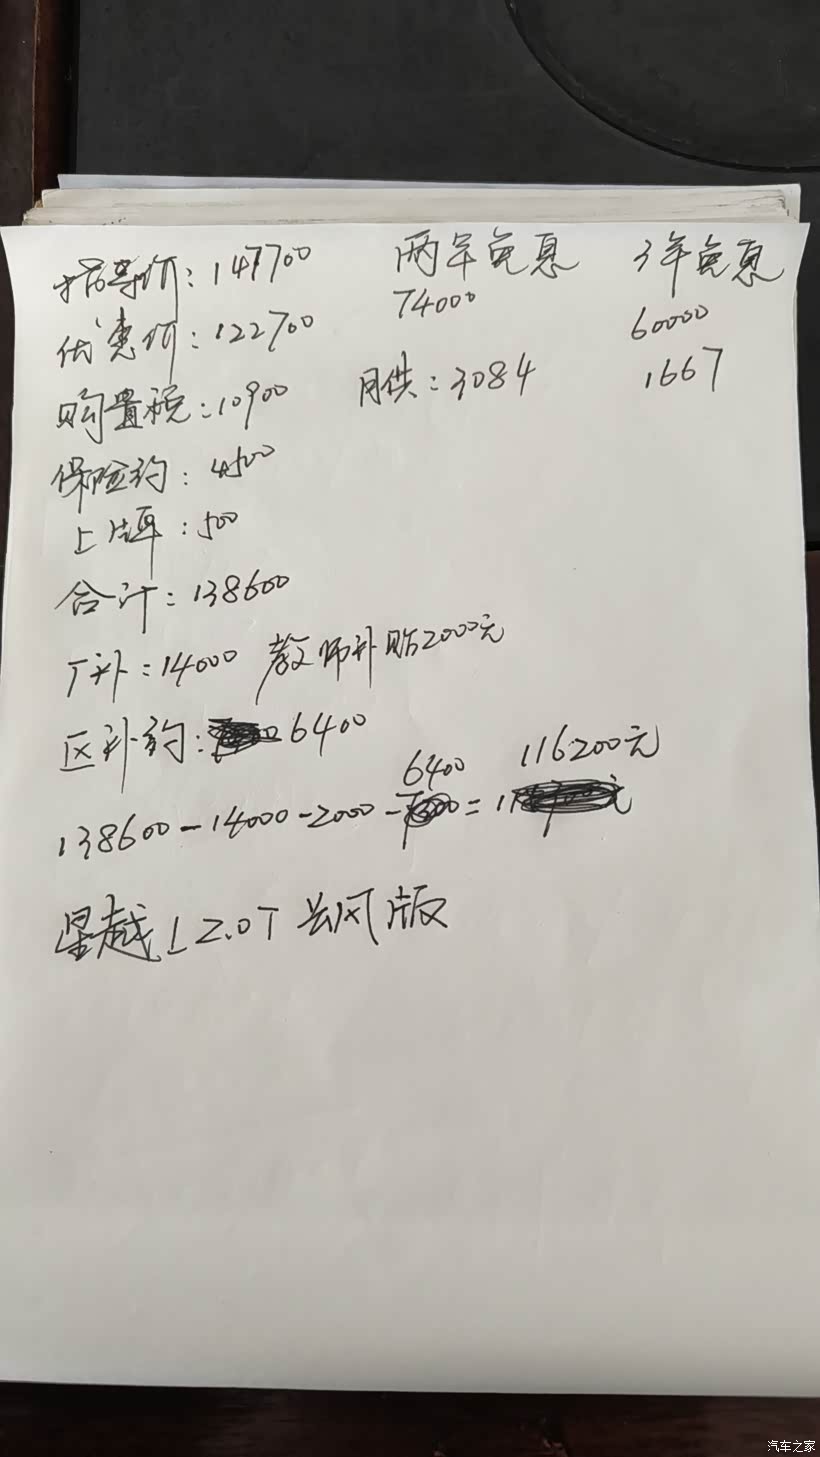 指导价：147700
优惠价：122700
购置税：10900
保险约：4500
上牌：500
合计：138600
厂补：14000 教师补贴2000元
区补约：6400
6400 116200元
138600-14000-2000-=1元
星越L2.0T 云风版
两年免息
74000
月供：3084
3年免息
60000
1667
汽车之家